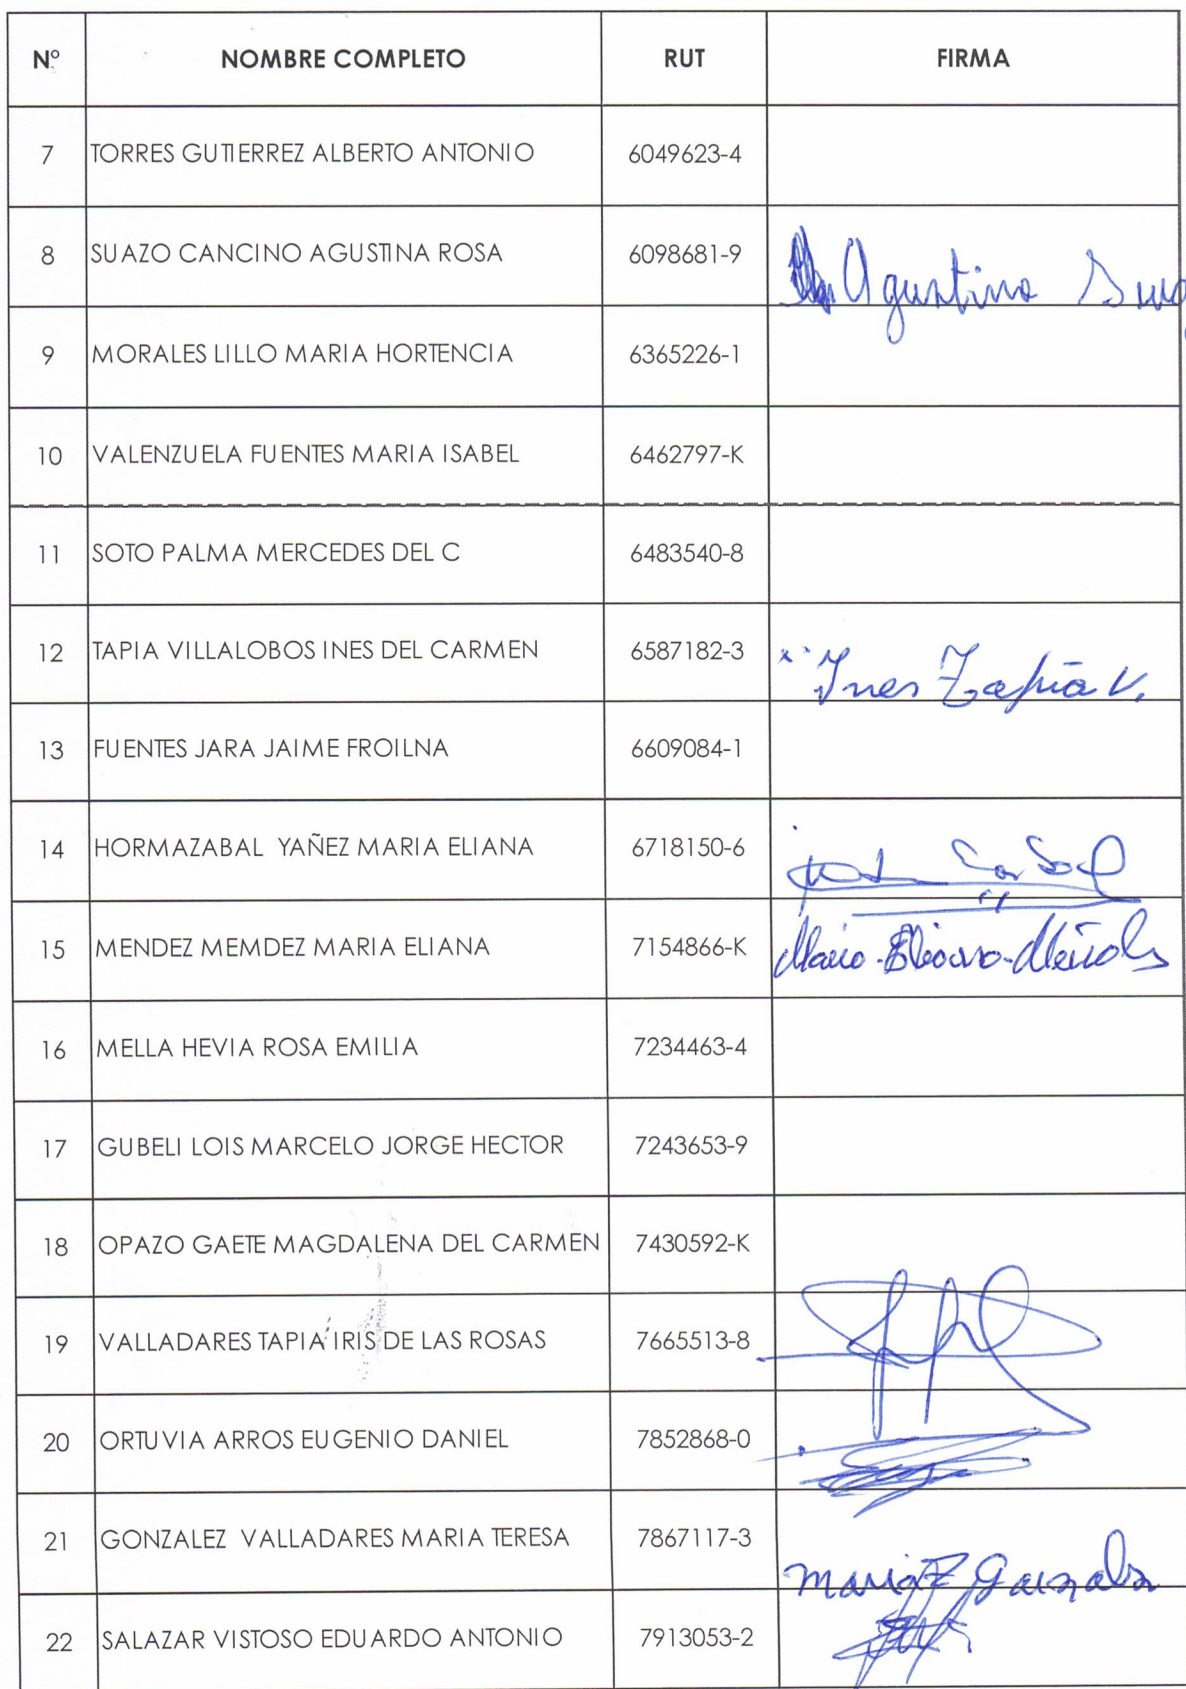 Nº NOMBRE COMPLETO RUT FIRMA
7 TORRES GUTIERREZ ALBERTO ANTONIO 6049623-4
8 SUAZO CANCINO AGUSTINA ROSA 6098681-9 Agustina
9 MORALES LILLO MARIA HORTENCIA 6365226-1
10 VALENZUELA FUENTES MARIA ISABEL 6462797-K
11 SOTO PALMA MERCEDES DEL C 6483540-8
12 TAPIA VILLALOBOS INES DEL CARMEN 6587182-3 Ines Tapia V.
13 FUENTES JARA JAIME FROILNA 6609084-1
14 HORMAZABAL YAÑEZ MARIA ELIANA 6718150-6
15 MENDEZ MEMDEZ MARIA ELIANA 7154866-K
16 MELLA HEVIA ROSA EMILIA 7234463-4
17 GUBELI LOIS MARCELO JORGE HECTOR 7243653-9
18 OPAZO GAETE MAGDALENA DEL CARMEN 7430592-K
19 VALLADARES TAPIA IRIS DE LAS ROSAS 7665513-8
20 ORTUVIA ARROS EUGENIO DANIEL 7852868-0
21 GONZALEZ VALLADARES MARIA TERESA 7867117-3 maria
22 SALAZAR VISTOSO EDUARDO ANTONIO 7913053-2